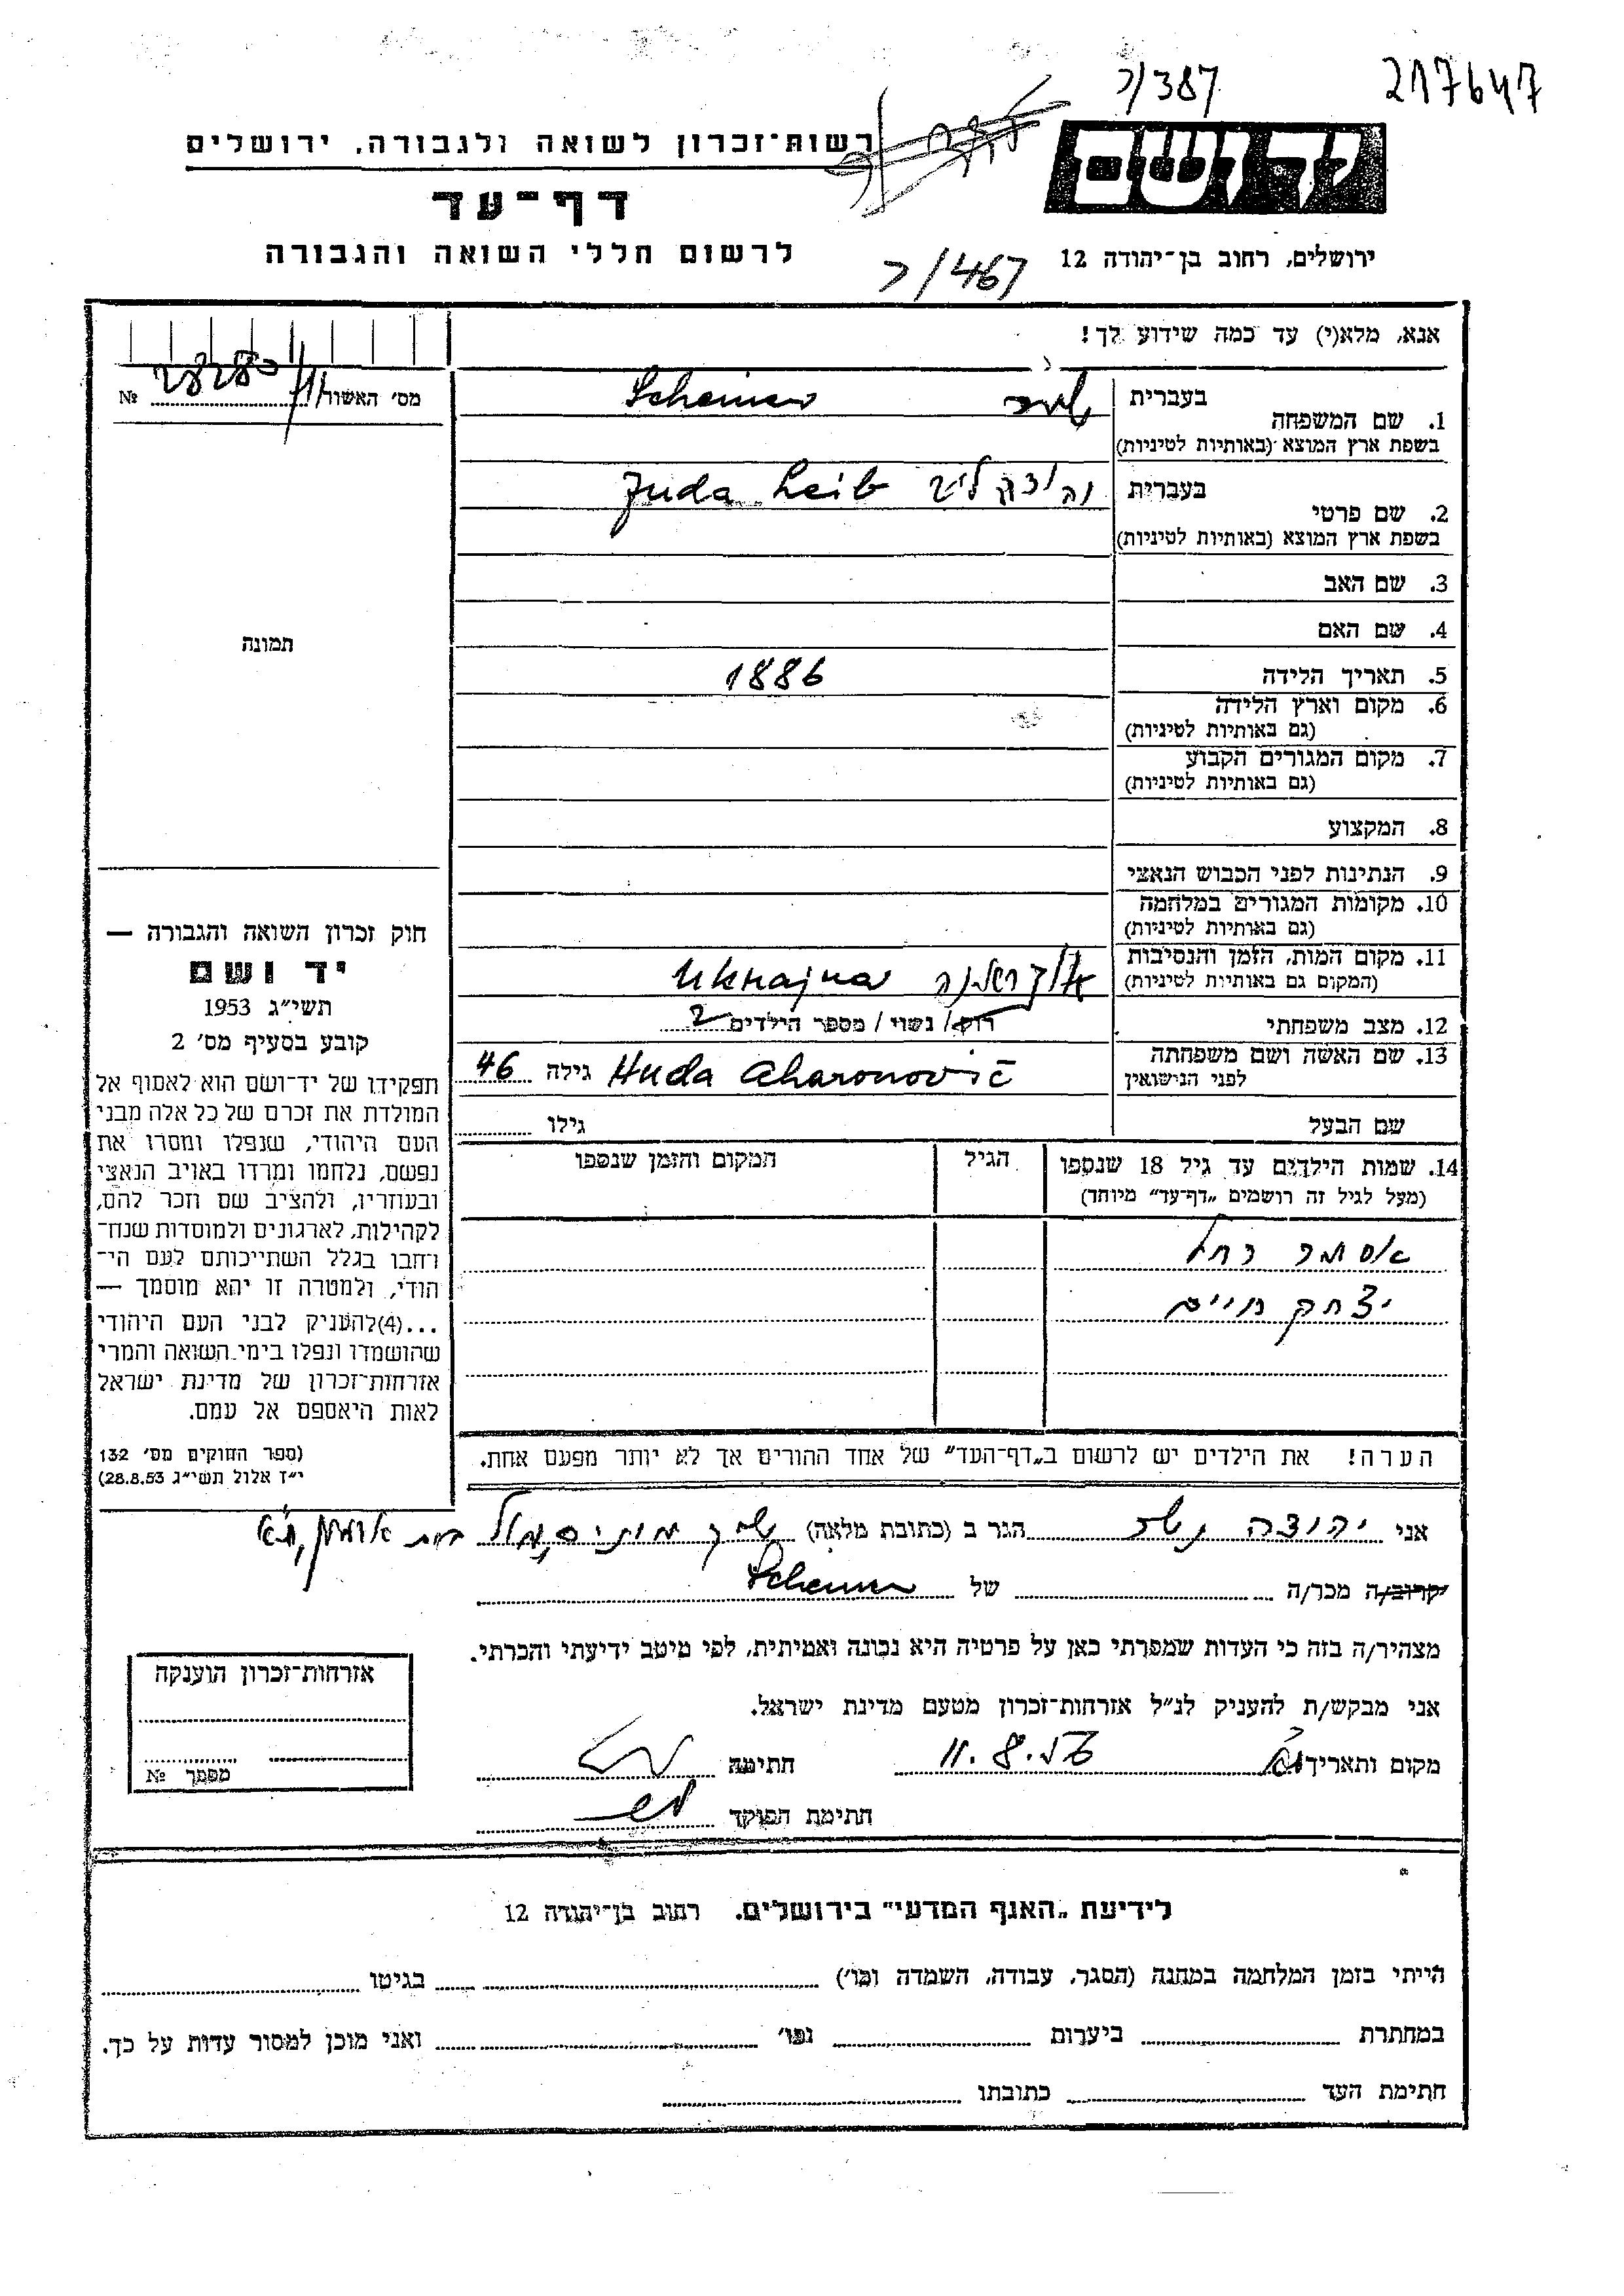 217647
387/כ
יד ושם
רשות-זכרון לשואה ולגבורה, ירושלים
דף-עד
לרשום חללי השואה והגבורה
ירושלים, רחוב בן-יהודה 12
467/כ
אנא, מלא(י) עד כמה שידוע לך!
מס' האשור
№ 28280
1. שם המשפחה
בעברית
Scheiner
בשפת ארץ המוצא (באותיות לטיניות)
2. שם פרטי
בעברית
Juda Leib יהודה ליב
בשפת ארץ המוצא (באותיות לטיניות)
3. שם האב
4. שם האם
תמונה
5. תאריך הלידה 1886
6. מקום וארץ הלידה
(גם באותיות לטיניות)
7. מקום המגורים הקבוע
(גם באותיות לטיניות)
8. המקצוע
9. הנתינות לפני הכבוש הנאצי
10. מקומות המגורים במלחמה
(גם באותיות לטיניות)
11. מקום המות, הזמן והנסיבות
(המקום גם באותיות לטיניות)
אוקראינה Ukrajna
12. מצב משפחתי
רווק/ נשוי/ מספר הילדים 2
13. שם האשה ושם משפחתה
לפני הנישואין
Huda Aharonovič גילה 46
שם הבעל גילו
14. שמות הילדים עד גיל 18 שנספו
(מעל לגיל זה רושמים "דף-עד" מיוחד)
הגיל
המקום והזמן שנספו
אסתר רחל
יצחק חיים
הערה! את הילדים יש לרשום ב"דף-העד" של אחד ההורים אך לא יותר מפעם אחת.
חוק זכרון השואה והגבורה —
יד ושם
תשי"ג 1953
קובע בסעיף מס' 2
תפקידו של יד-ושם הוא לאסוף אל
המולדת את זכרם של כל אלה מבני
העם היהודי, שנפלו ומסרו את
נפשם, נלחמו ומרדו באויב הנאצי
ובעוזריו, ולהציב שם וזכר להם,
לקהילות, לארגונים ולמוסדות שנח-
רחבו בגלל השתייכותם לעם הי-
הודי, ולמטרה זו יהא מוסמך —
...(4)להעניק לבני העם היהודי
שהושמדו ונפלו בימי השואה והמרי
אזרחות-זכרון של מדינת ישראל
לאות היאספם אל עמם.
(ספר החוקים מס' 132
י"ז אלול תשי"ג 28.8.53)
אני יהודה הגר ב (כתובת מלאה)
קרוב/ה מכר/ה של Scheiner
מצהיר/ה בזה כי העדות שמסרתי כאן על פרטיה היא נכונה ואמיתית, לפי מיטב ידיעתי והכרתי.
אני מבקש/ת להעניק לנ"ל אזרחות-זכרון מטעם מדינת ישראל.
מקום ותאריך 11.8.57 חתימה
חתימת הפוקד
אזרחות-זכרון הוענקה
מסמך №
לידיעת "האגף המדעי" בירושלים. רחוב בן-יהודה 12
הייתי בזמן המלחמה במחנה (הסגר, עבודה, השמדה וכו') בגיטו
במחתרת ביערות וכו' ואני מוכן למסור עדות על כך.
חתימת העד כתובתו